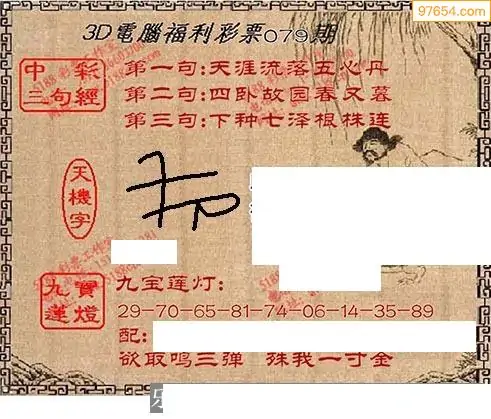 97654.com
3D電腦福利彩票079期
中彩
三句經
第一句:天涯流落五心丹
第二句:四卧故园春又暮
第三句:下种七泽根株连
天機字
九寶
蓮燈
九宝莲灯:
29-70-65-81-74-06-14-35-89
配:
欲取鸣三弹 殊我一寸金